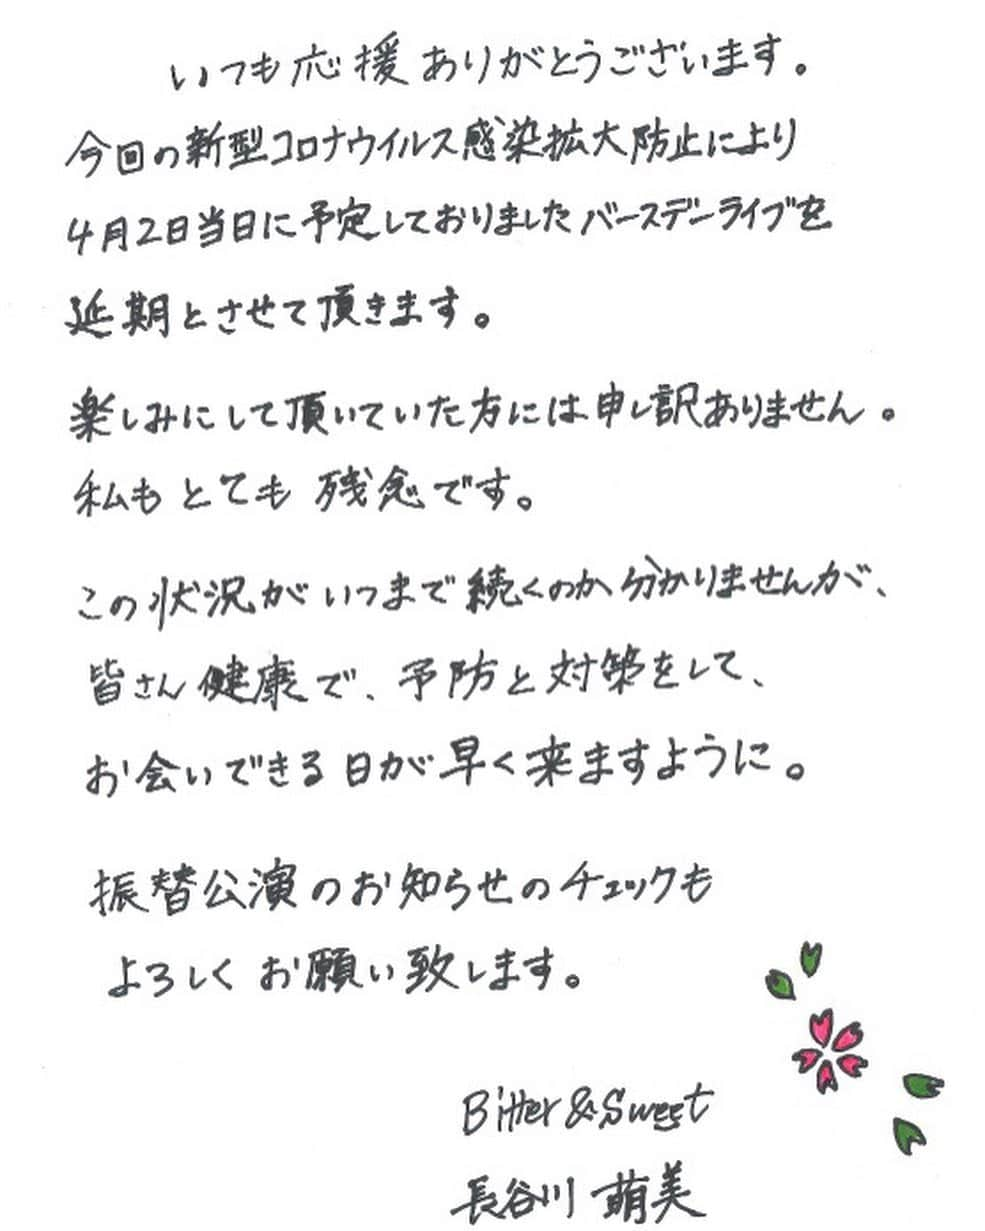 いつも応援ありがとうございます。
今回の新型コロナウイルス感染拡大防止により
4月2日当日に予定しておりましたバースデーライブを
延期とさせて頂きます。
楽しみにして頂いていた方には申し訳ありません。
私もとても残念です。
この状況がいつまで続くのか分かりませんが、
皆さん健康で、予防と対策をして、
お会いできる日が早く来ますように。
振替公演のお知らせのチェックも
よろしくお願い致します。
Bitter & Sweet
長谷川 萌美